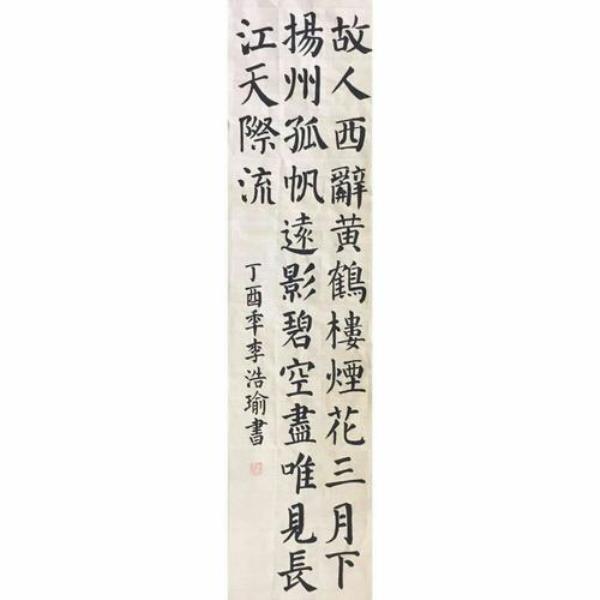 故人西辭黄鶴樓煙花三月下
揚州孤帆遠影碧空盡唯見長
江天際流
丁酉年李浩瑜書